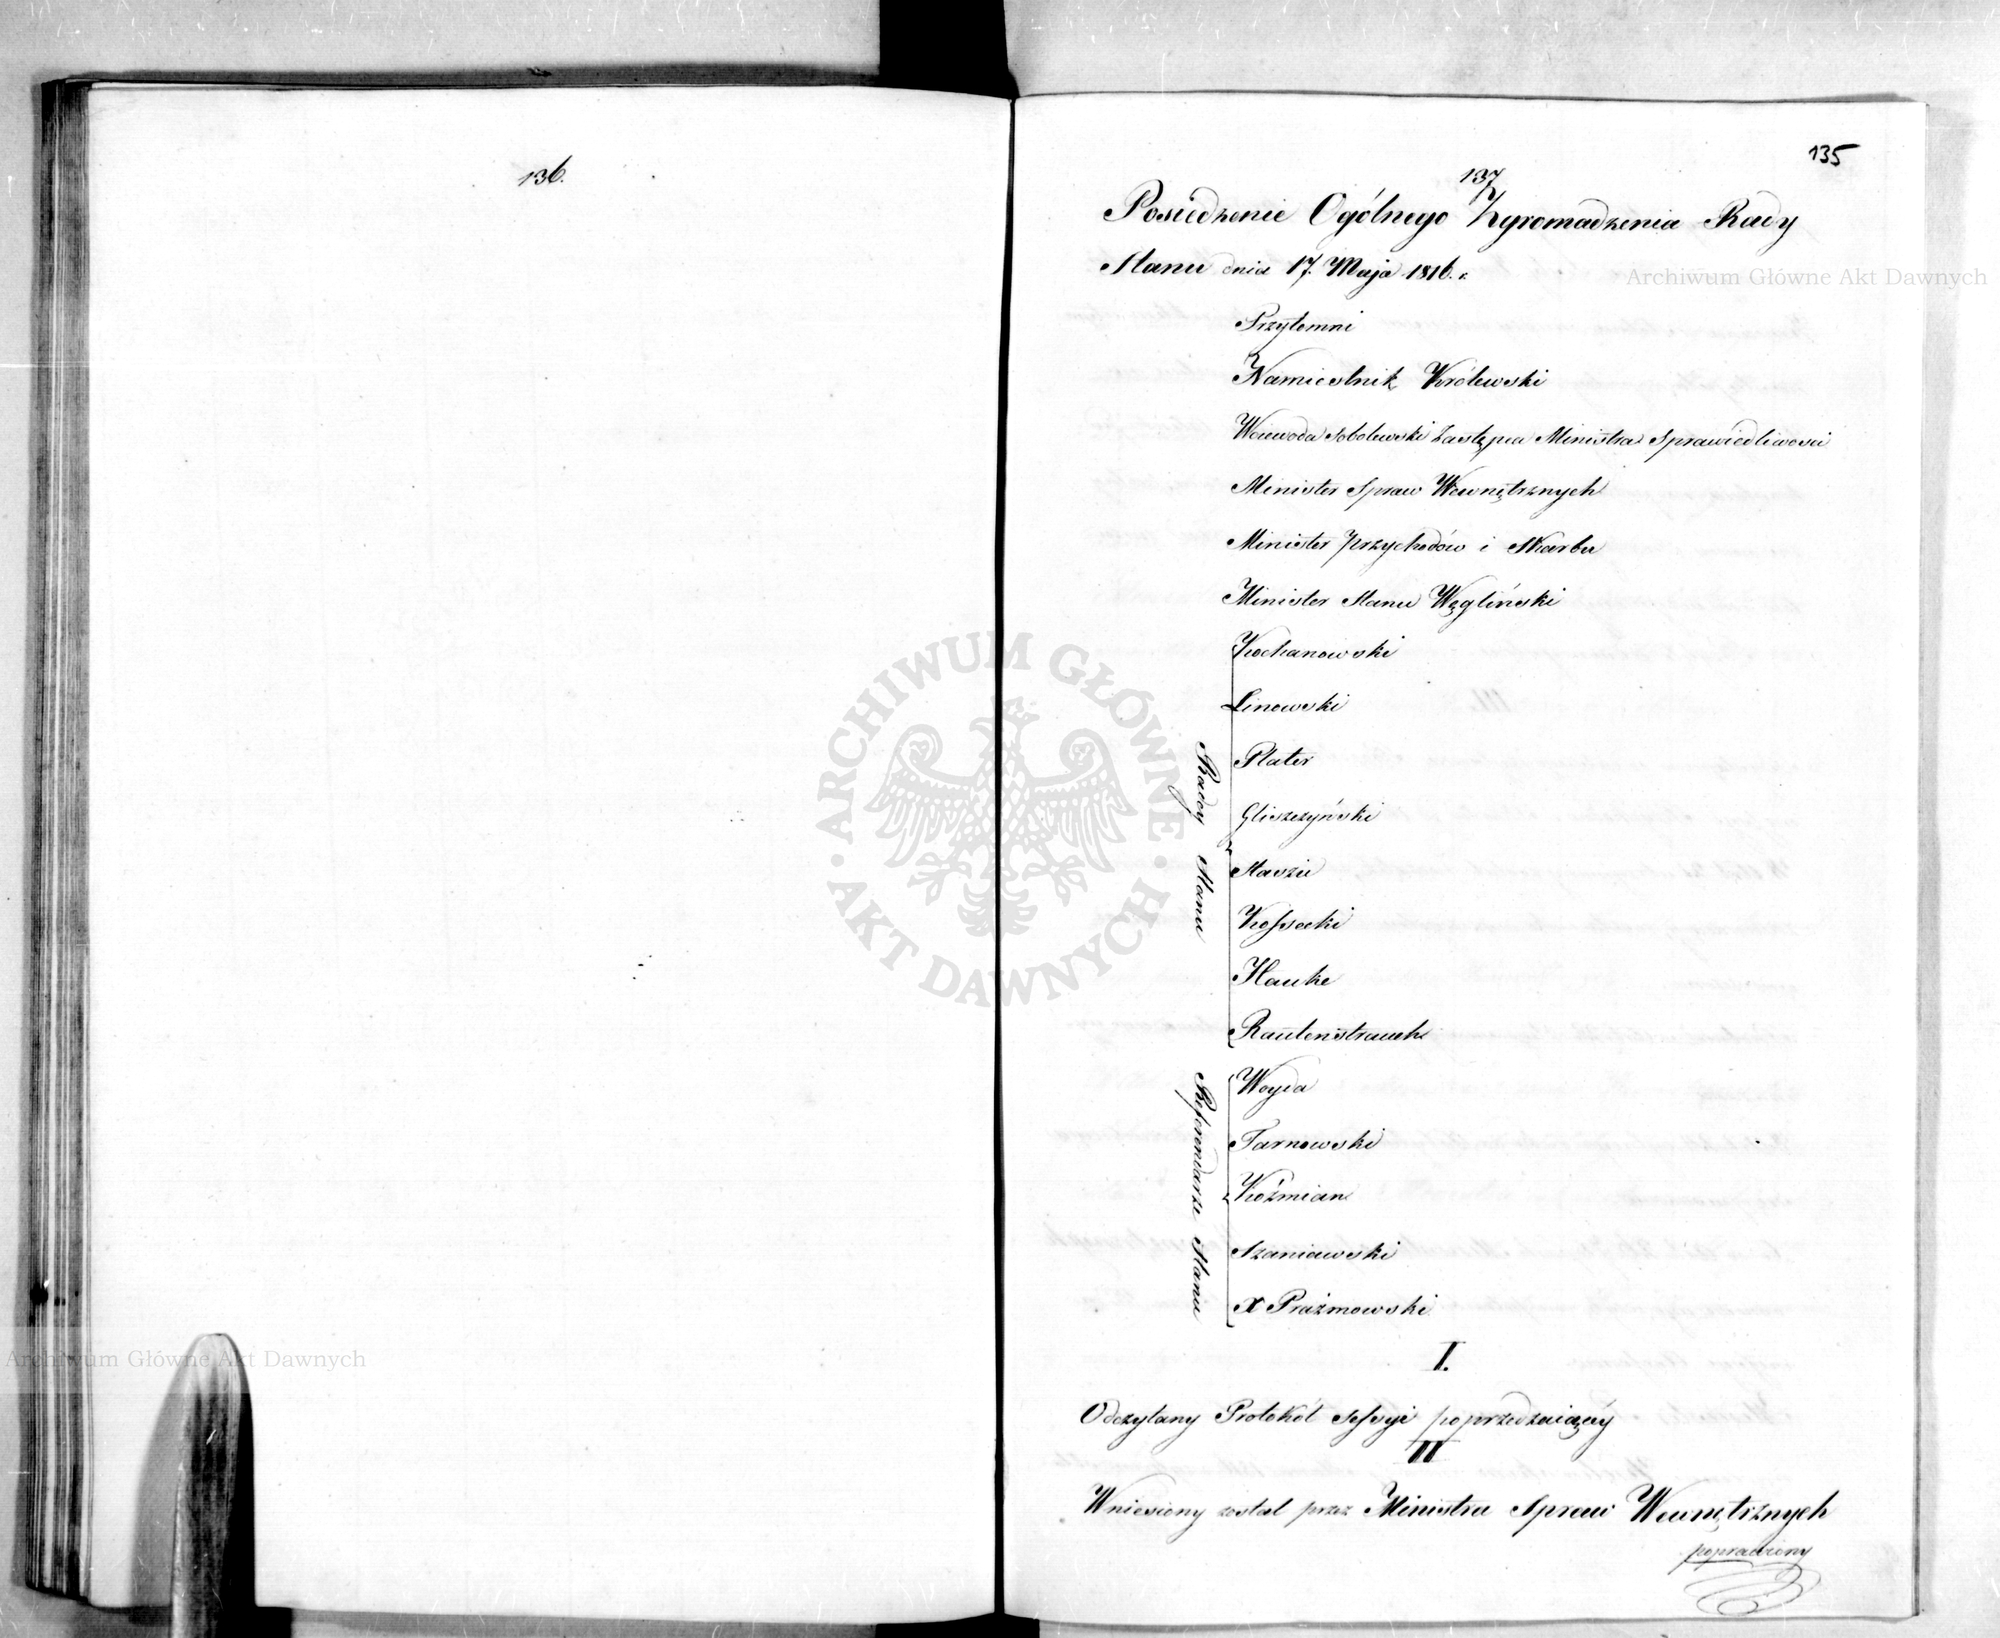 136.
135
137
Posiedzenie Ogólnego Zgromadzenia Rady
Stanu dnia 17. Maja 1816. r.
Przytomni
Namiestnik Królewski
Woiewoda Sobolewski Zastępca Ministra Sprawiedliwosci
Minister Spraw Wewnętrznych
Minister Przychodów i Skarbu
Minister Stanu Węgliński
Radcy Stanu
Kochanowski
Linowski
Plater
Gliszczyński
Staszic
Kossecki
Hauke
Rautenstrauch
Referendarze Stanu
Woyda
Tarnowski
Koźmian
Szaniawski
X Prażmowski
I.
Odczytany Protokół sessyi poprzedzaiącéy
II
Wniesiony został przez Ministra Spraw Wewnętrznych
poprawiony
Archiwum Główne Akt Dawnych
Archiwum Główne Akt Dawnych
ARCHIWUM GŁÓWNE
AKT DAWNYCH